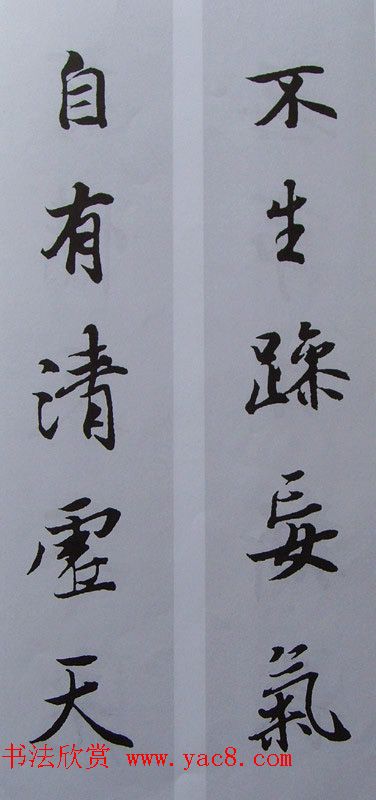 不生躁妄氣
自有清虛天
书法欣赏 www.yac8.com